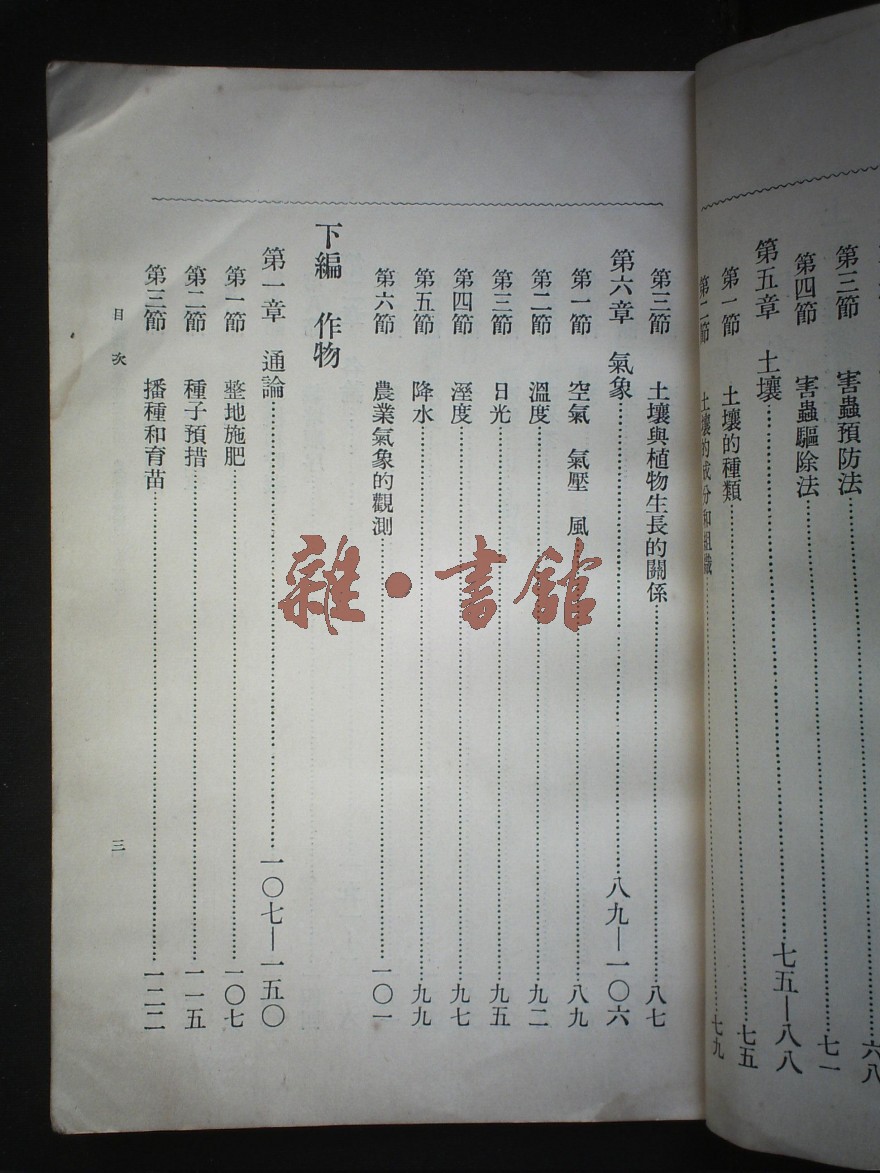 第三節 害蟲預防法……六八
第四節 害蟲驅除法……七一
第五章 土壤……七五—八八
第一節 土壤的種類……七五
第二節 土壤的成分和組織……七九
第三節 土壤與植物生長的關係……八七
第六章 氣象……八九—一〇六
第一節 空氣 氣壓 風……八九
第二節 溫度……九二
第三節 日光……九五
第四節 溼度……九七
第五節 降水……九九
第六節 農業氣象的觀測……一〇一
下編 作物
第一章 通論……一〇七—一五〇
第一節 整地施肥……一〇七
第二節 種子預措……一一五
第三節 播種和育苗……一二二
目次
三
雜·書館